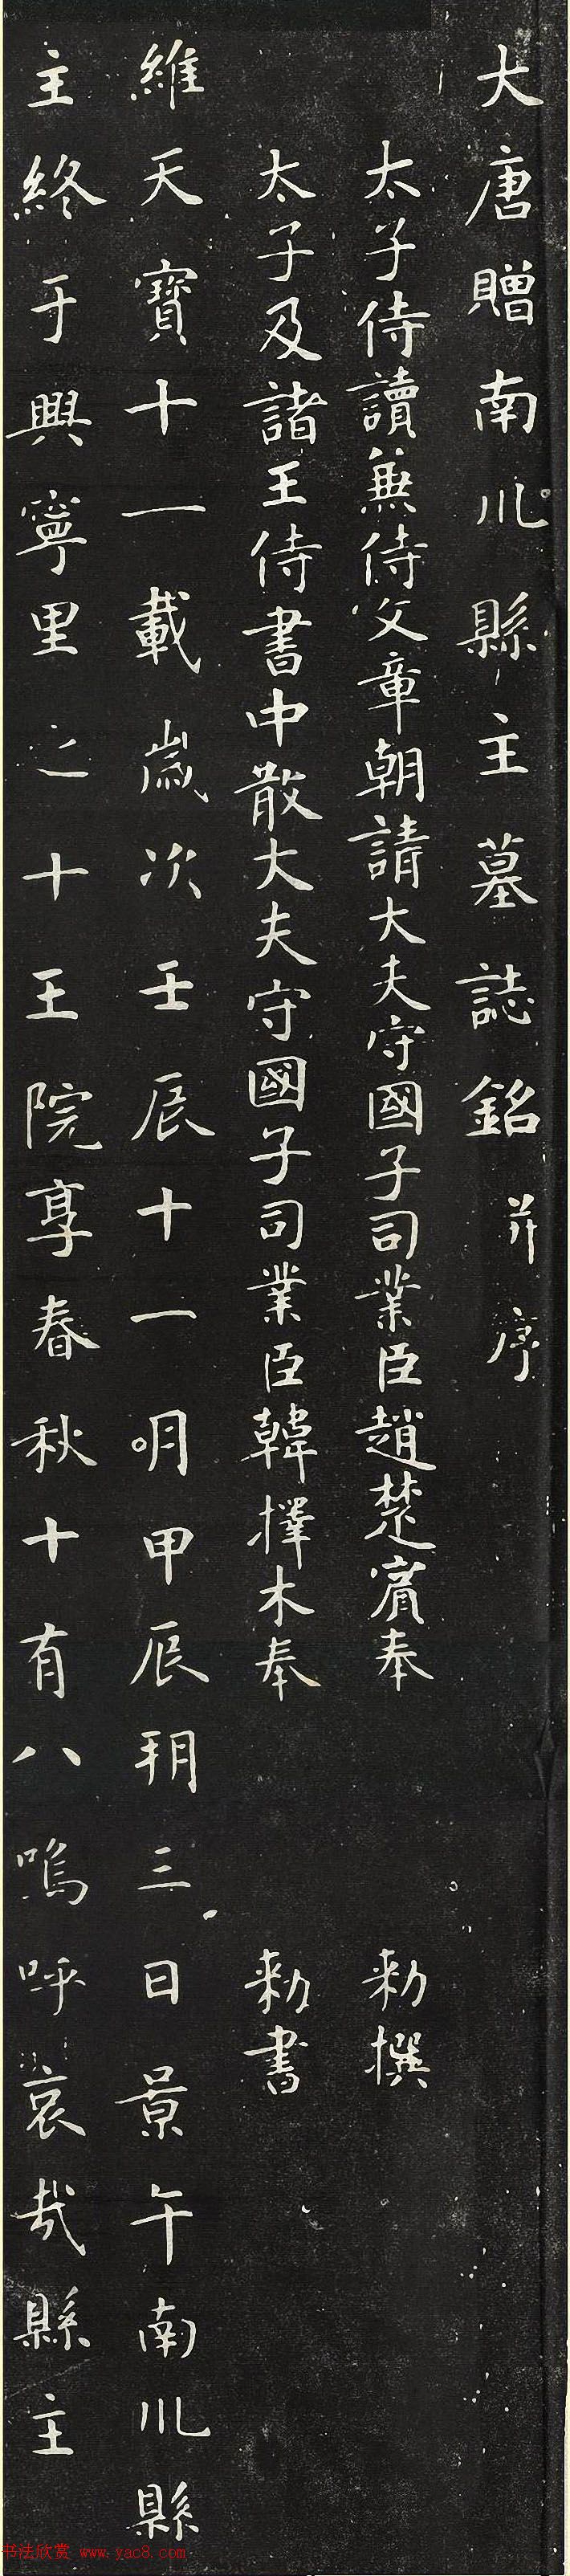 大唐贈南川縣主墓誌銘并序
太子侍讀兼侍文章朝請大夫守國子司業臣趙楚賓奉 勑撰
太子及諸王侍書中散大夫守國子司業臣韓擇木奉 勑書
維天寶十一載歲次壬辰十一月甲辰朔三日景午南川縣
主終于興寧里之十王院享春秋十有八嗚呼哀哉縣主
书法欣赏 www.yac8.com